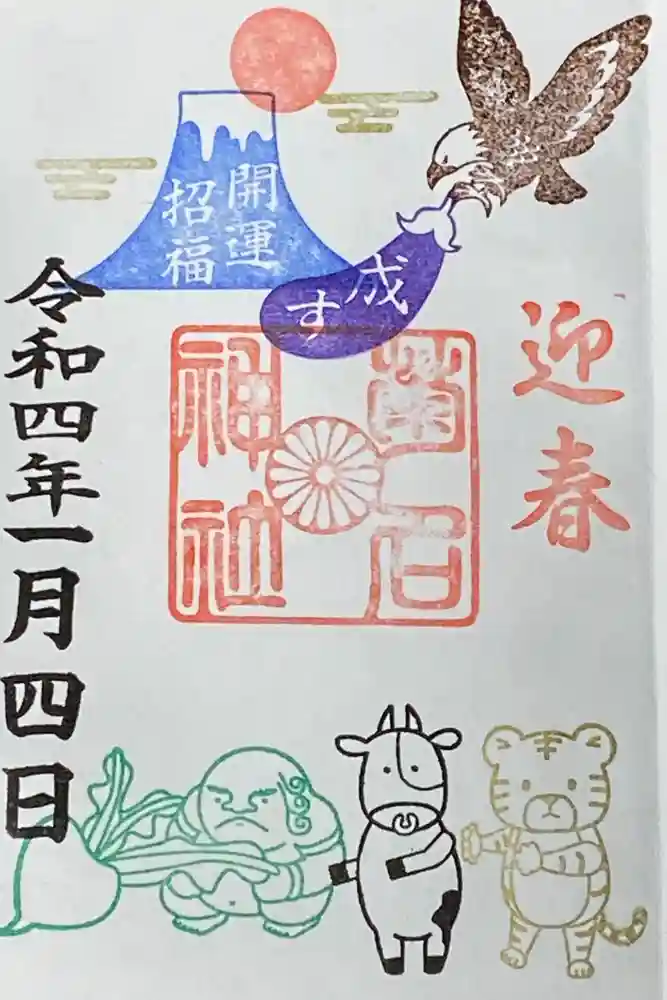 開運
招福
成す
迎春
菊名
神社
令和四年一月四日